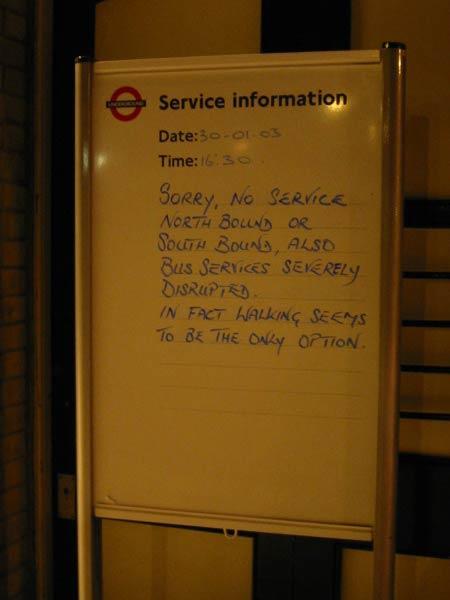 UNDERGROUND
Service information
Date: 30-01-03
Time: 16.30.
SORRY, NO SERVICE
NORTH BOUND OR
SOUTH BOUND, ALSO
BUS SERVICES SEVERELY
DISRUPTED.
IN FACT WALKING SEEMS
TO BE THE ONLY OPTION.